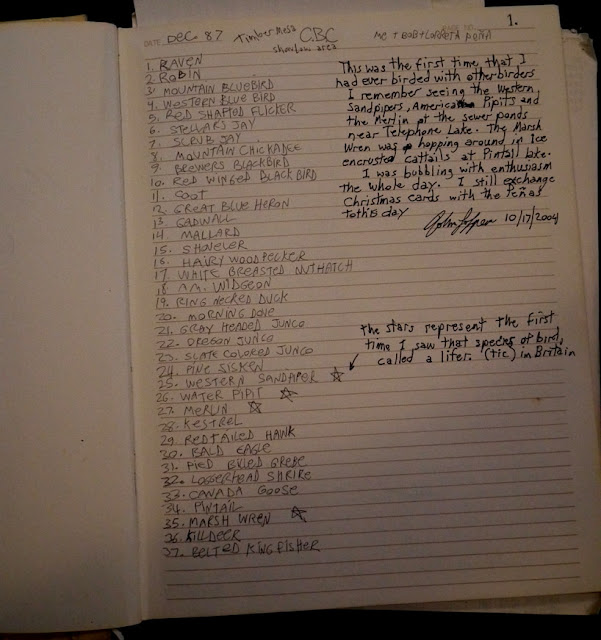 1.
DATE DEC 87 Timber Mesa CBC
Showlow area
ME + BOB + LORRETA PEÑA
1. RAVEN
2. ROBIN
3. MOUNTAIN BLUEBIRD
4. WESTERN BLUE BIRD
5. RED SHAFTED FLICKER
6. STELLARS JAY
7. SCRUB JAY
8. MOUNTAIN CHICKADEE
9. BREWERS BLACKBIRD
10. RED WINGED BLACKBIRD
11. COOT
12. GREAT BLUE HERON
13. GADWALL
14. MALLARD
15. SHOVELER
16. HAIRY WOODPECKER
17. WHITE BREASTED NUTHATCH
18. AM. WIDGEON
19. RING NECKED DUCK
20. MORNING DOVE
21. GRAY HEADED JUNCO
22. OREGON JUNCO
23. SLATE COLORED JUNCO
24. PINE SISKEN
25. WESTERN SANDPIPER ☆
26. WATER PIPIT ☆
27. MERLIN ☆
28. KESTREL
29. REDTAILED HAWK
30. BALD EAGLE
31. PIED BILLED GREBE
32. LOGGERHEAD SHRIKE
33. CANADA GOOSE
34. PINTAIL
35. MARSH WREN ☆
36. KILLDEER
37. BELTED KINGFISHER
This was the first time that I
had ever birded with other birders
I remember seeing the Western
Sandpipers, American Pipits and
the Merlin at the sewer ponds
near Telephone Lake. The Marsh
Wren was hopping around in Ice
encrusted cattails at Pintail lake.
I was bubbling with enthusiasm
the whole day. I still exchange
Christmas cards with the Peñas
to this day
10/17/2004
the stars represent the first
time I saw that species of bird,
called a lifer. (tic) in Britain